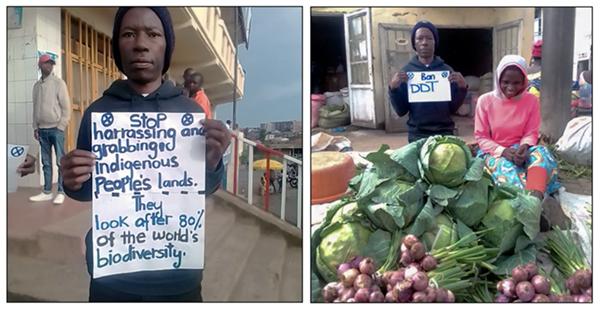 STOP
harrassing and
grabbing
Indigenous
People's lands.
They
look after 80%
of the world's
biodiversity.
Ban
DDT